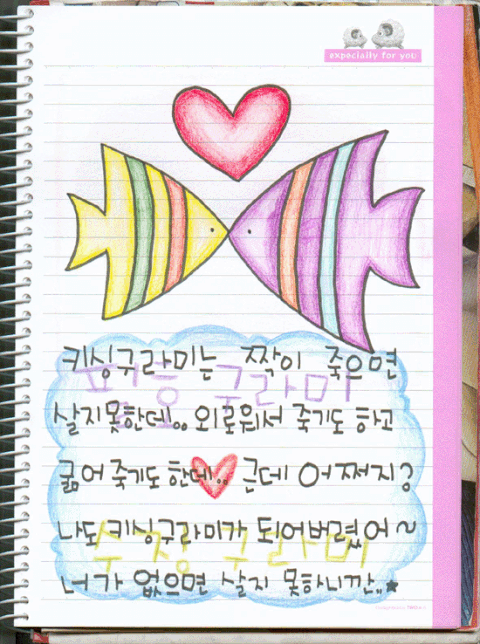 expecially for you
키싱구라미는 짝이 죽으면
구라미
살지못한데.. 외로워서 죽기도 하고
굶어 죽기도 한데.. 근데 어쩌지?
나도 키싱구라미가 되어버렸어~
구라미
너가 없으면 살지 못하니깐..★